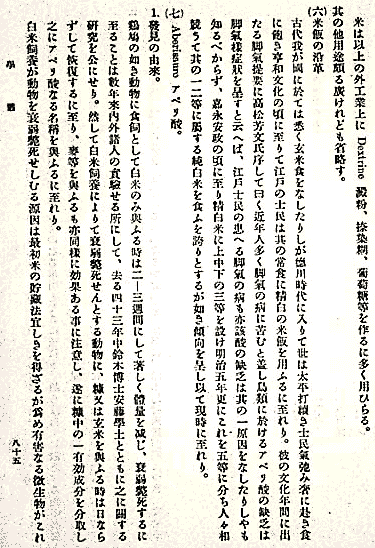 米は以上の外工業上に Dextrino 澱粉、捺染糊、葡萄糖等を作るに多く用ひらる。
其の他用途頗る廣けれども省略す。
(六) 米飯の沿革
古代我が國に於ては悉く玄米食をなしたりしが德川時代に入りて世は太平打續き士民氣弛み奢に赴き食
に飽き享和文化の頃に至りて江戸の士民は其の常食に精白の米飯を用ふるに至れり。彼の文化年間に出
たる脚氣提要に高松芳文氏序して曰く近年人多く脚氣の病に苦むと蓋し鳥類に於けるアベリ酸の缺乏は
脚氣樣症狀を呈すと云へば、江戸士民の患へる脚氣の病も亦該酸の缺乏は其の一原因をなしたりしやも
知るべからず、嘉永安政の頃に至り精白米に上中下の三等を設け明治五年更にこれを五等に分ち人々相
競うて其の一二等に屬する純白米を食ふを誇りとするが如き傾向を呈し以て現時に至れり。
(七) アベリ酸。
1. 發見の由來。
鷄鳩の如き動物に食餌として白米のみ與ふる時は二—三週間にして著しく體量を減じ、衰弱斃死するに
至ることは數年來內外諸人の實驗せる所にして、去る四十三年中鈴木博士安藤學士とともに之に關する
研究を公にせり。然して白米飼養によりて衰弱斃死せんとする動物に、糠又は玄米を與ふる時は日なら
ずして恢復するに至り、麥等を與ふるも亦同樣に効果ある事に注意し、遂に糠中の一有効成分を分取し
之にアベリ酸なる名稱を與ふるに至れり。
白米飼養が動物を衰弱斃死せしむる源因は最初米の貯藏法宜しきを得ざるが爲め有害なる微生物がこれ
學 
八十五